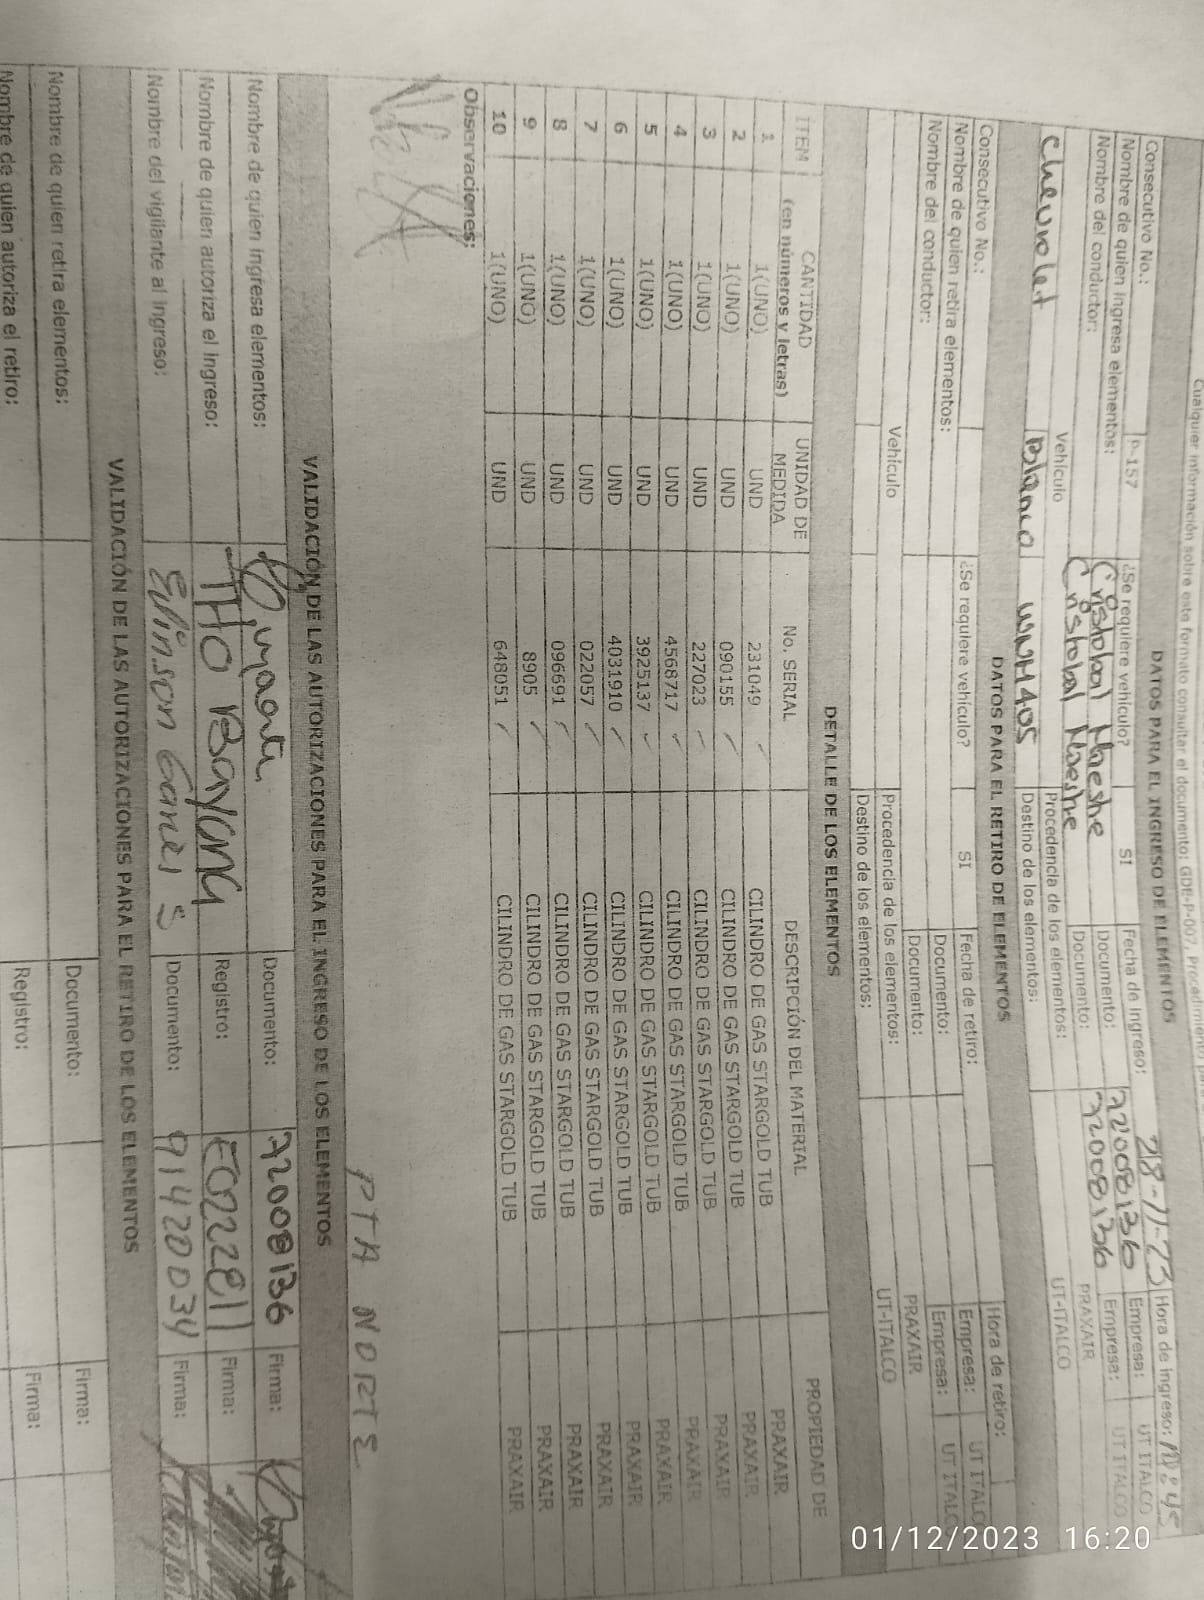 Cualquier información sobre este formato consultar el documento: GDE-P-007, Procedimiento
DATOS PARA EL INGRESO DE ELEMENTOS
Consecutivo No.: P-157 ¿Se requiere vehículo? SI Fecha de ingreso: 28-11-23 Hora de ingreso:
Nombre de quien ingresa elementos: Cristobal Maestre Documento: 72008136 Empresa: UT ITALCO
Nombre del conductor: Cristobal Maestre Documento: 72008136 Empresa: UT ITALCO
Vehículo Procedencia de los elementos: PRAXAIR
Chevrolet Blanco WNH405 Destino de los elementos: UT-ITALCO
DATOS PARA EL RETIRO DE ELEMENTOS
Consecutivo No.: ¿Se requiere vehículo? SI Fecha de retiro: Hora de retiro:
Nombre de quien retira elementos: Documento: Empresa: UT ITALC
Nombre del conductor: Documento: Empresa: UT ITALC
Vehículo Procedencia de los elementos: PRAXAIR
Destino de los elementos: UT-ITALCO
DETALLE DE LOS ELEMENTOS
ITEM CANTIDAD (en números y letras) UNIDAD DE MEDIDA No. SERIAL DESCRIPCIÓN DEL MATERIAL PROPIEDAD DE
1 1(UNO) UND 231049 ✓ CILINDRO DE GAS STARGOLD TUB PRAXAIR
2 1(UNO) UND 090155 ✓ CILINDRO DE GAS STARGOLD TUB PRAXAIR
3 1(UNO) UND 227023 ✓ CILINDRO DE GAS STARGOLD TUB PRAXAIR
4 1(UNO) UND 4568717 ✓ CILINDRO DE GAS STARGOLD TUB PRAXAIR
5 1(UNO) UND 3925137 ✓ CILINDRO DE GAS STARGOLD TUB PRAXAIR
6 1(UNO) UND 4031910 ✓ CILINDRO DE GAS STARGOLD TUB PRAXAIR
7 1(UNO) UND 022057 ✓ CILINDRO DE GAS STARGOLD TUB PRAXAIR
8 1(UNO) UND 096691 ✓ CILINDRO DE GAS STARGOLD TUB PRAXAIR
9 1(UNO) UND 8905 ✓ CILINDRO DE GAS STARGOLD TUB PRAXAIR
10 1(UNO) UND 648051 ✓ CILINDRO DE GAS STARGOLD TUB PRAXAIR
Observaciones:
PTA NORTE
VALIDACIÓN DE LAS AUTORIZACIONES PARA EL INGRESO DE LOS ELEMENTOS
Nombre de quien ingresa elementos: Documento: 72008136 Firma:
Nombre de quien autoriza el ingreso: JTHO BAYONA Registro: E022281 Firma:
Nombre del vigilante al ingreso: Elinson Garcés S Documento: 91420034 Firma:
VALIDACIÓN DE LAS AUTORIZACIONES PARA EL RETIRO DE LOS ELEMENTOS
Nombre de quien retira elementos: Documento: Firma:
Nombre de quien autoriza el retiro: Registro: Firma:
01/12/2023 16:20